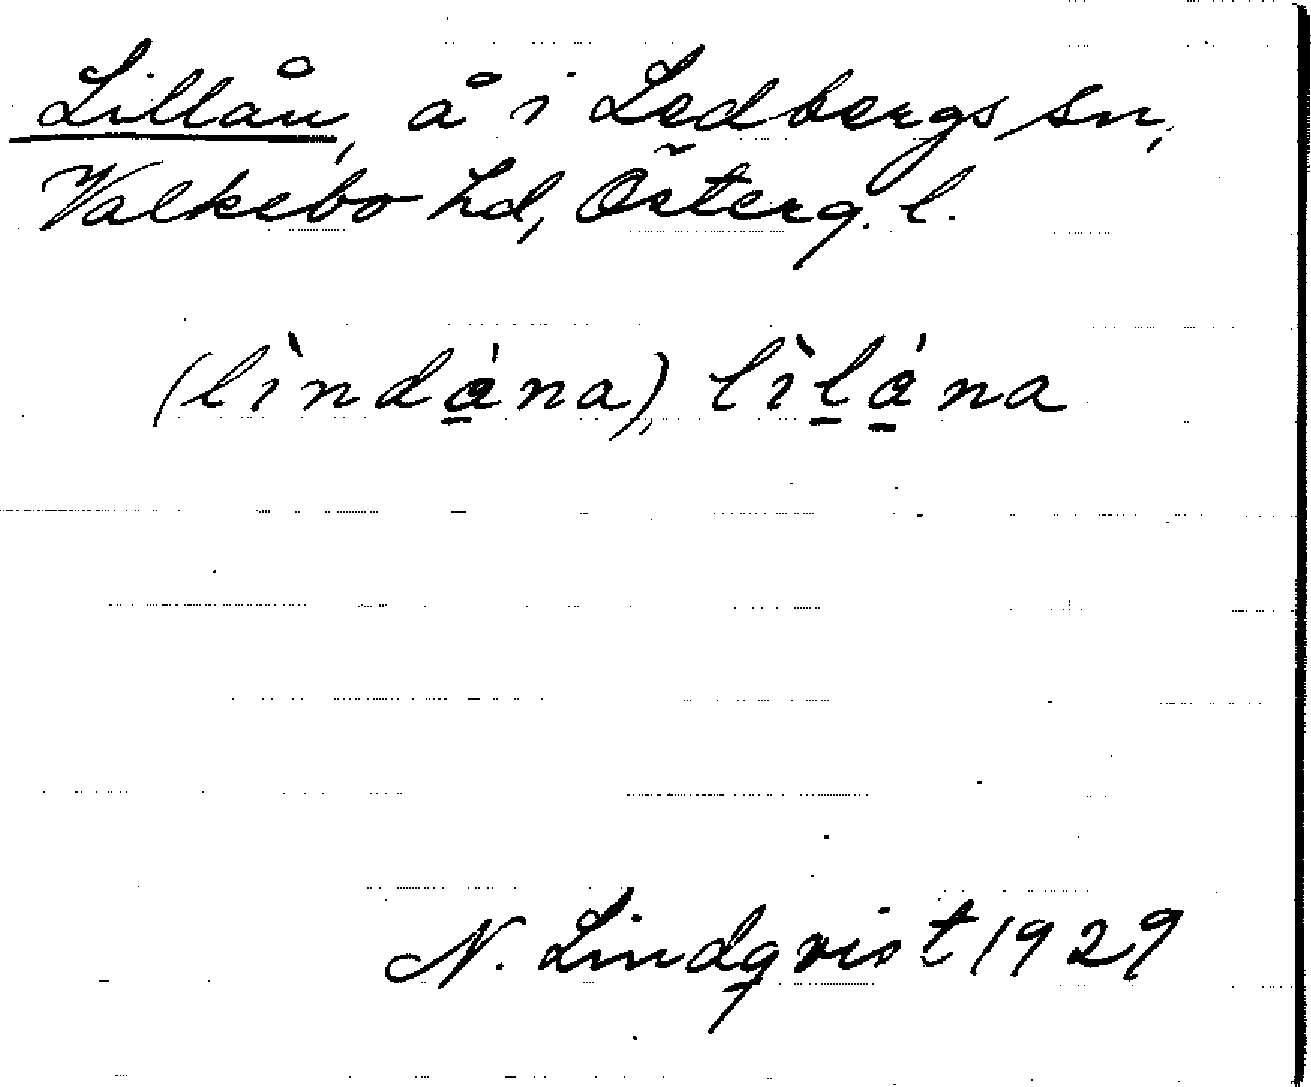 Lillån, å i Ledbergs sn,
Valkebo hd, Österg. l.
(lìndá̱na), lìḻá̱na
N. Lindqvist 1929